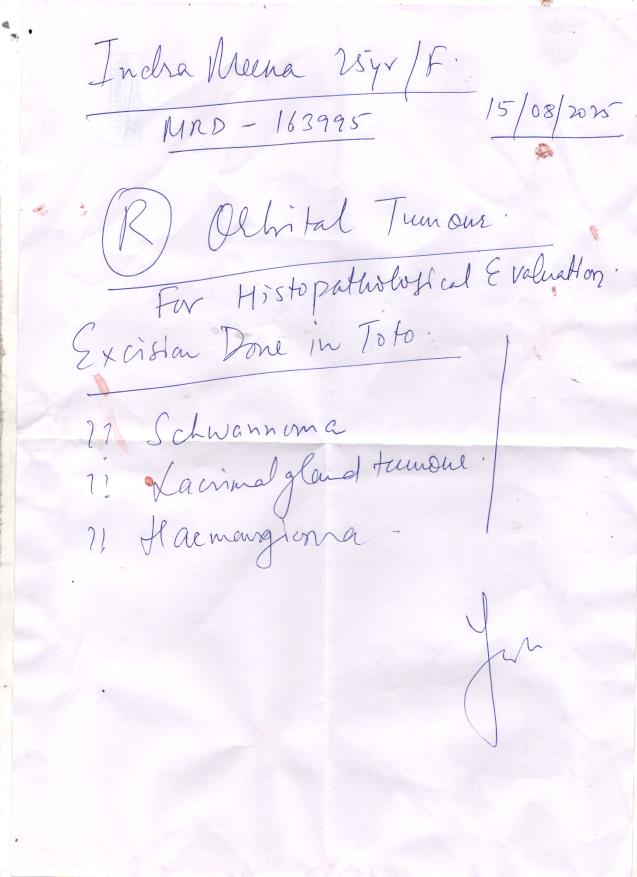 Indra Meena 25yr/F.
MRD - 163995
15/08/2025
R Orbital Tumour.
For Histopathological Evaluation.
Excision Done in Toto.
?? Schwannoma
?? Lacrimal gland tumour.
?? Haemangioma -